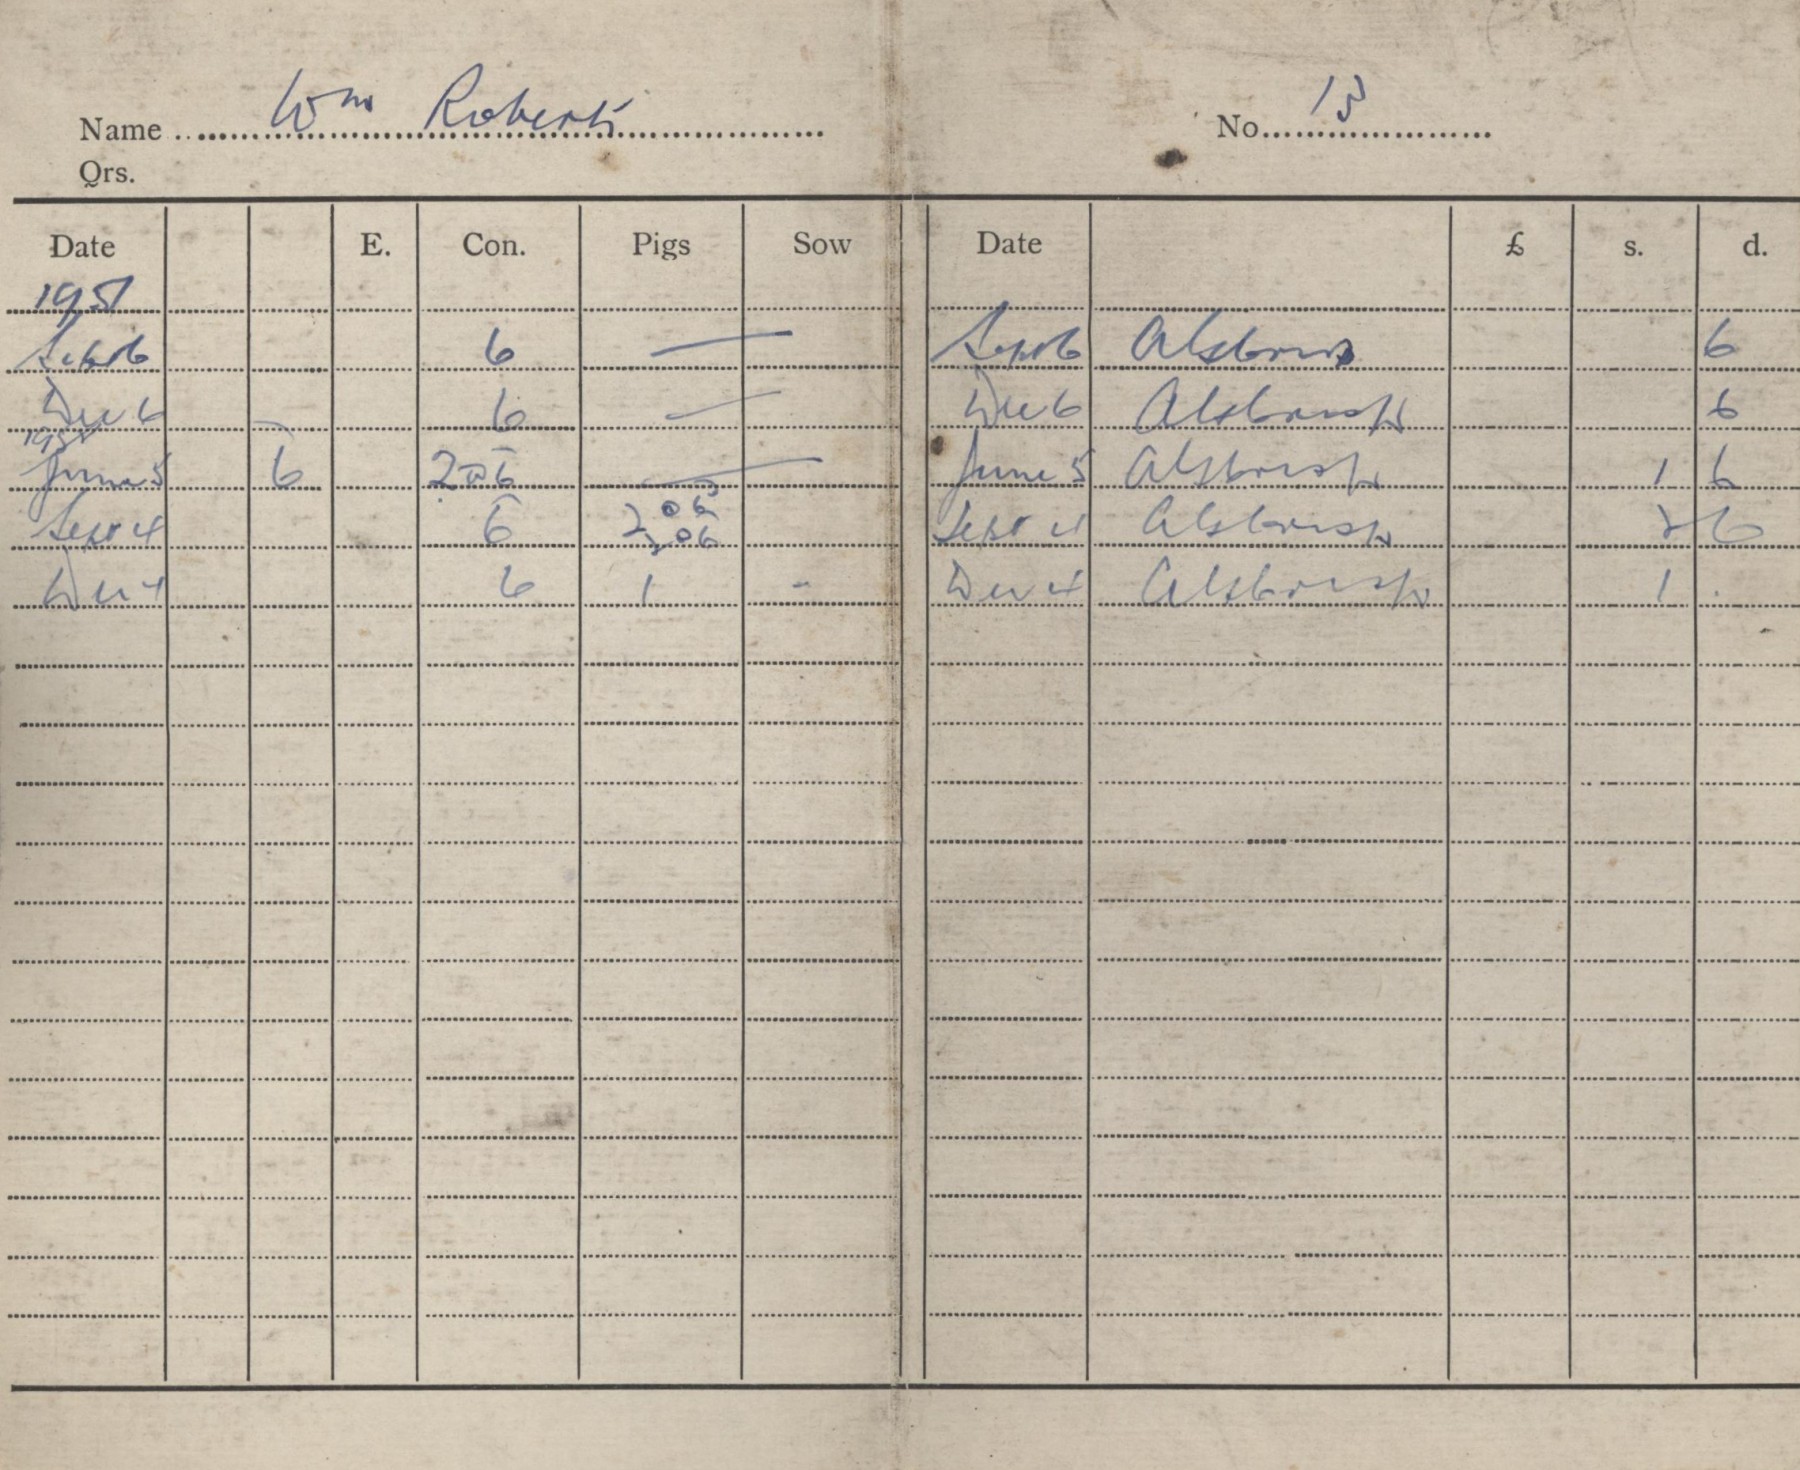 Name Wm Roberts No. 13
Qrs.
Date E. Con. Pigs Sow Date £ s. d.
1951
Sept 6 6 — Sept 6 6
Dec 6 6 — Dec 6 6
1952
June 5 6 2 @ 6 — June 5 1 6
Sept 4 6 2 @ 6 Sept 4 2 6
Dec 4 6 1 - Dec 4 1 .